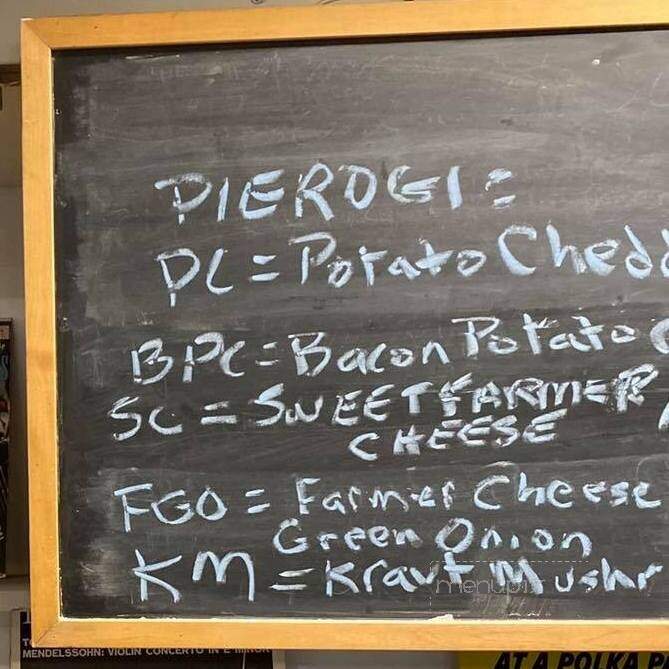 PIEROGI:
PC = Potato Chedd
BPC = Bacon Potato C
SC = SWEET FARMER
CHEESE
FGO = Farmer Cheese
Green Onion
KM = Kraut Mushr
menupix
MENDELSSOHN: VIOLIN CONCERTO IN E MINOR
AT A POLKA P